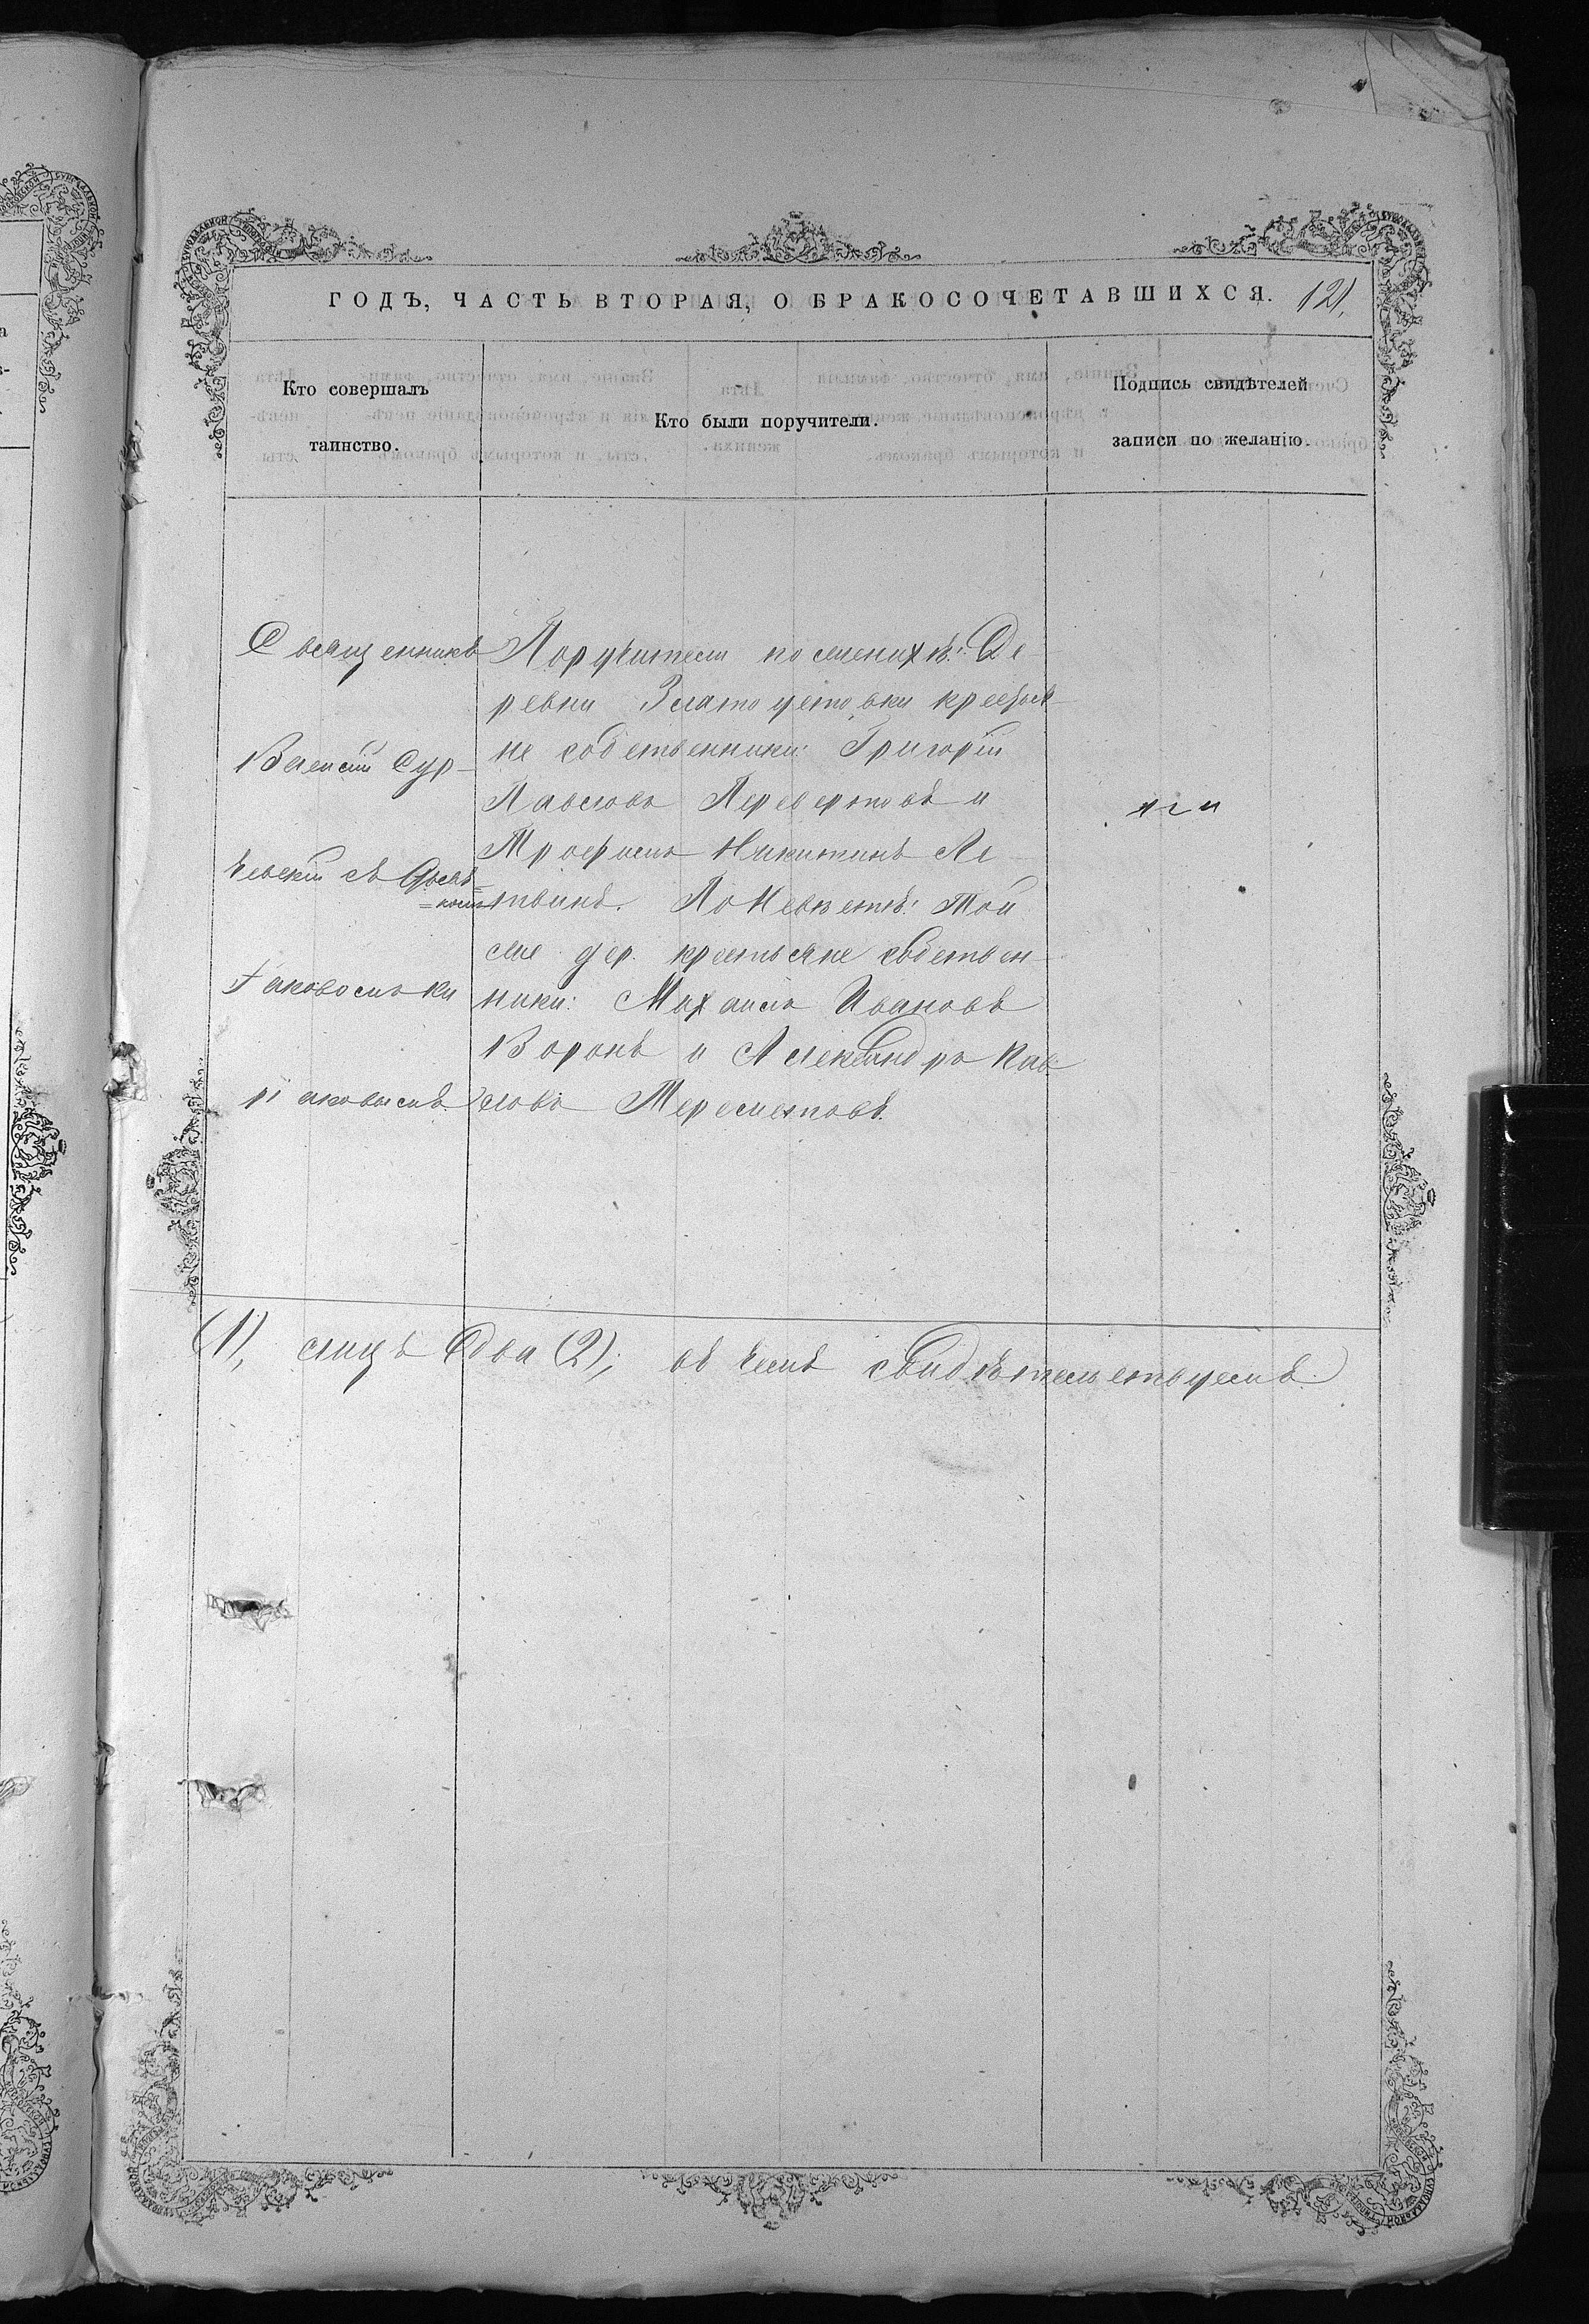 ГОДЪ, ЧАСТЬ ВТОРАЯ, О БРАКОСОЧЕТАВШИХСЯ. 121,
Кто совершалъ
таинство.
Кто были поручители.
Подпись свидѣтелей
записи по желанію.
Священникъ
Василій Сур-
чевскій съ
Іаковомъ
Поручители по женихѣ: Де
ревни Златоустовки крестья
не собственники: Григорій
Павловъ Перевертовъ и
Трофимъ Никитинъ Ли
твинъ. По Невѣстѣ: той
же дер. крестьяне собствен
ники: Михаилъ Ивановъ
Воронъ и Александръ Пав
ловъ
(1), лицъ два (2); въ чемъ свидѣтельствуемъ.